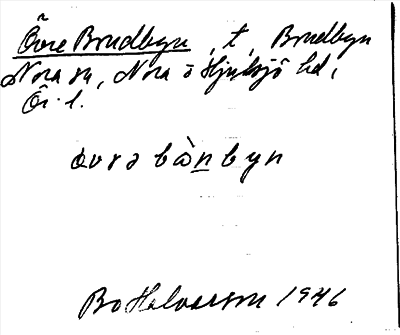 Övre Brudbyn, t, Brudbyn
Nora sn, Nora o Hjulsjö hd,
Ör. l.
òvrə bànbyn
Bo Halvarson 1946